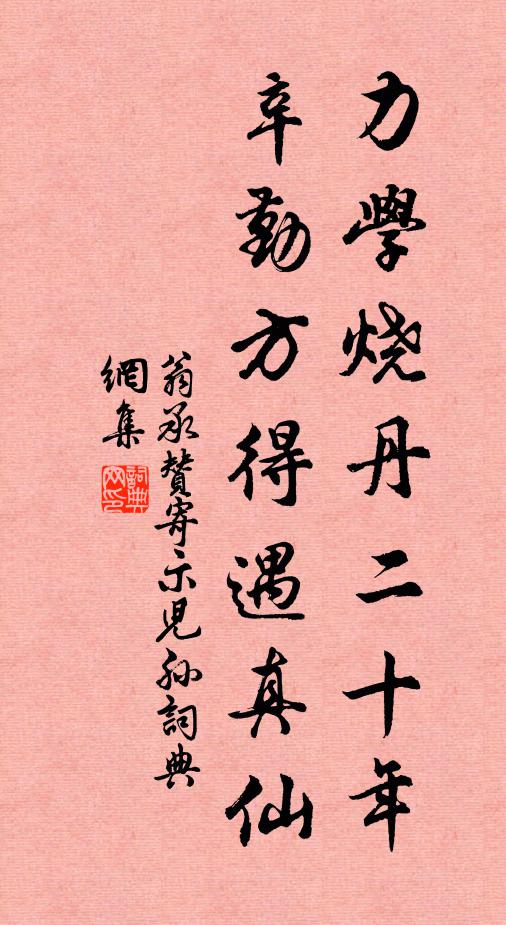 力學烧丹二十年
辛勤方得遇真仙
翁承贊寄示兒孫詞典
網集
詞典
网印